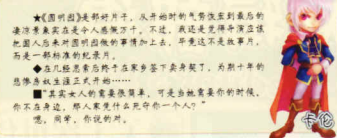 ★《圆明园》是部好片子，从开始时的气势恢宏到最后的
凄凉景象实在是令人感慨万千，不过，我还是觉得导演应该
把国人后来对圆明园做的事情加上去，毕竟这不是故事片，
而是一部标准的纪录片。
◆在几经思索后终于在家乡签下卖身契了，为期十年的
悲惨房奴生涯正式开始……
■"其实女人的需要很简单，可是当她需要你的时候，
你不在身边，那人家凭什么死守你一个人？"
嗯，同学，你说的对。
卡伦